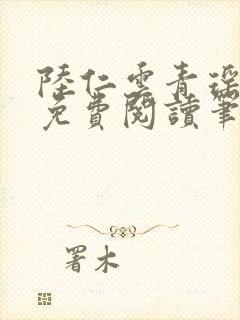 陸仁雲青瑤
免費閱讀筆
署木